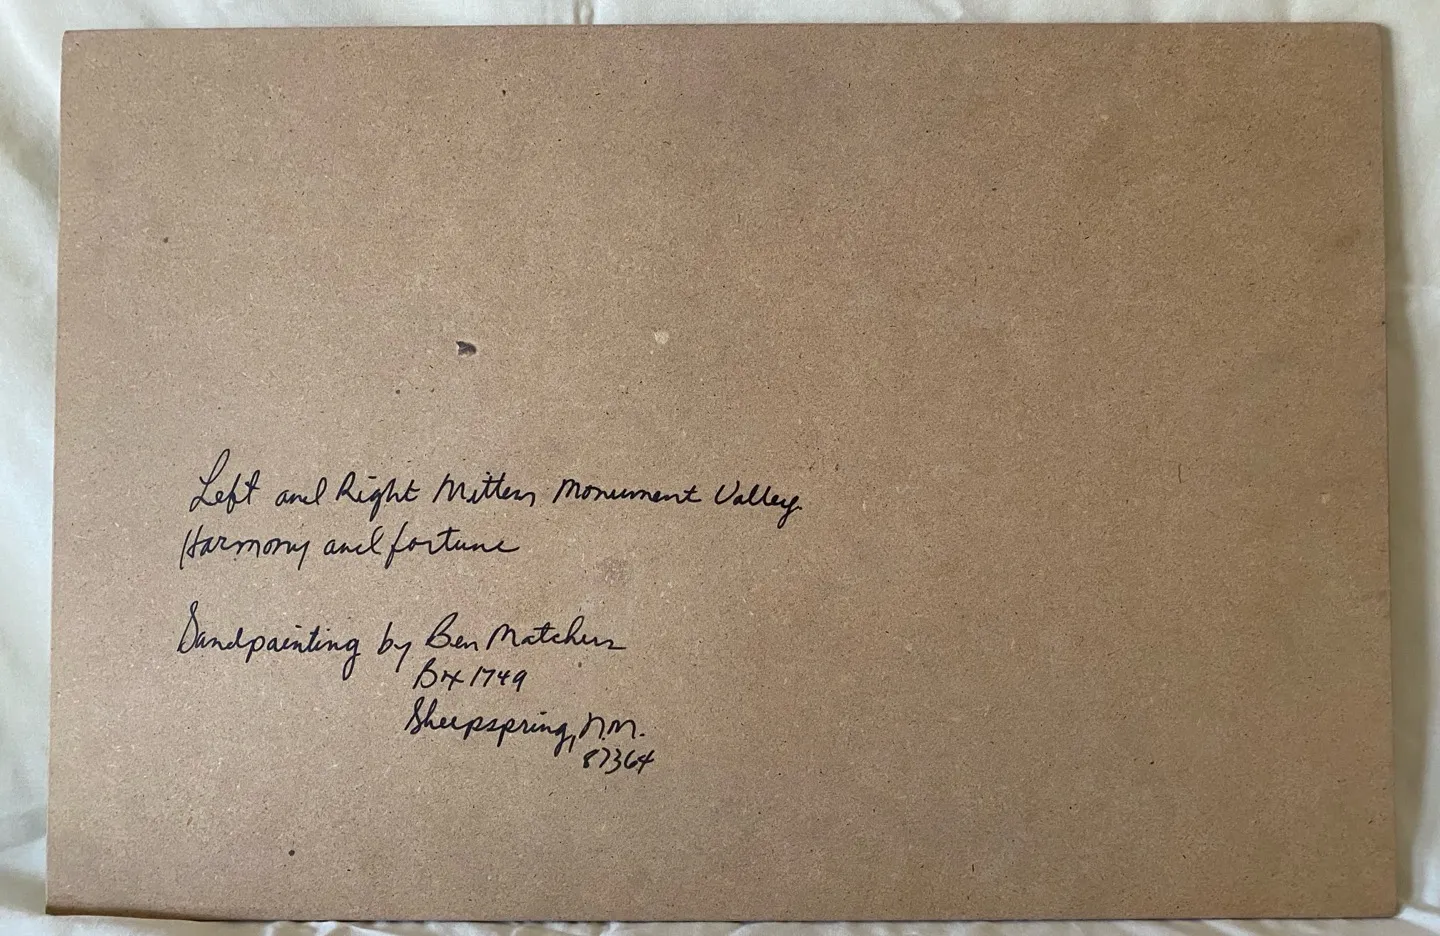 Left and Right Mittens Monument Valley.
Harmony and fortune
Sandpainting by Ben Matchens
Box 1749
Sheepspring, N.M.
87364